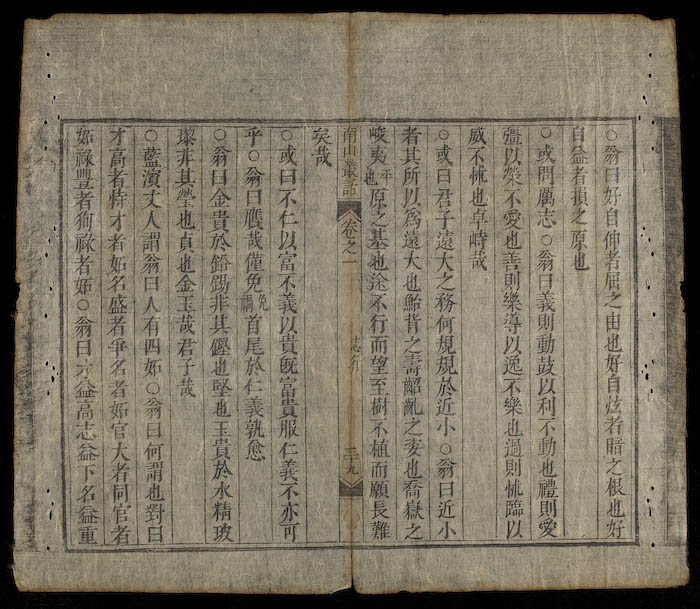 ○翁曰好自伸者屈之由也好自炫者暗之根也好
自益者損之原也
○或問厲志○翁曰義則動鼓以利不動也禮則愛
彊以榮不愛也善則樂導以逸不樂也過則怵臨以
威不怵也卓峙哉
○或曰君子遠大之務何規規於近小○翁曰近小
者其所以為遠大也鮐背之壽齠齔之麥也喬嶽之
峻夷平也原之基也途不行而望至樹不植而願長難
南山叢話 卷之一 志介 三十九
矣哉
○或曰不仁以富不義以貴旣富貴服仁義不亦可
乎○翁曰贋哉僅免免謂首尾於仁義孰愈
○翁曰金貴於鉛錫非其鏗也堅也玉貴於水精玻
瓈非其瑩也貞也金玉哉君子哉
○藍濱丈人謂翁曰人有四妬○翁曰何謂也對曰
才高者恃才者妬名盛者爭名者妬官大者同官者
妬祿豐者狥祿者妬○翁曰才益高志益下名益重